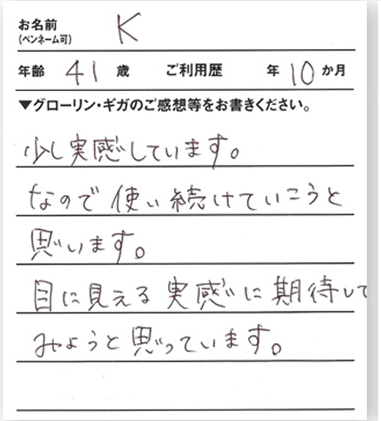 お名前
(ペンネーム可) K
年齢 41 歳 ご利用歴 年 10 か月
▼グローリン・ギガのご感想等をお書きください。
少し実感しています。
なので使い続けていこうと
思います。
目に見える実感に期待して
みようと思っています。